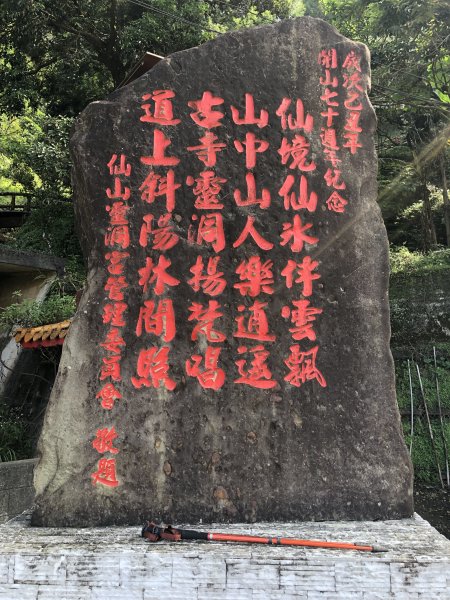 歲次乙丑年
開山七十週年紀念
仙境仙水伴雲飄
山中山人樂逍遥
古寺靈洞揚梵唱
道上斜陽林間照
仙山靈洞宮管理委員會 敬題